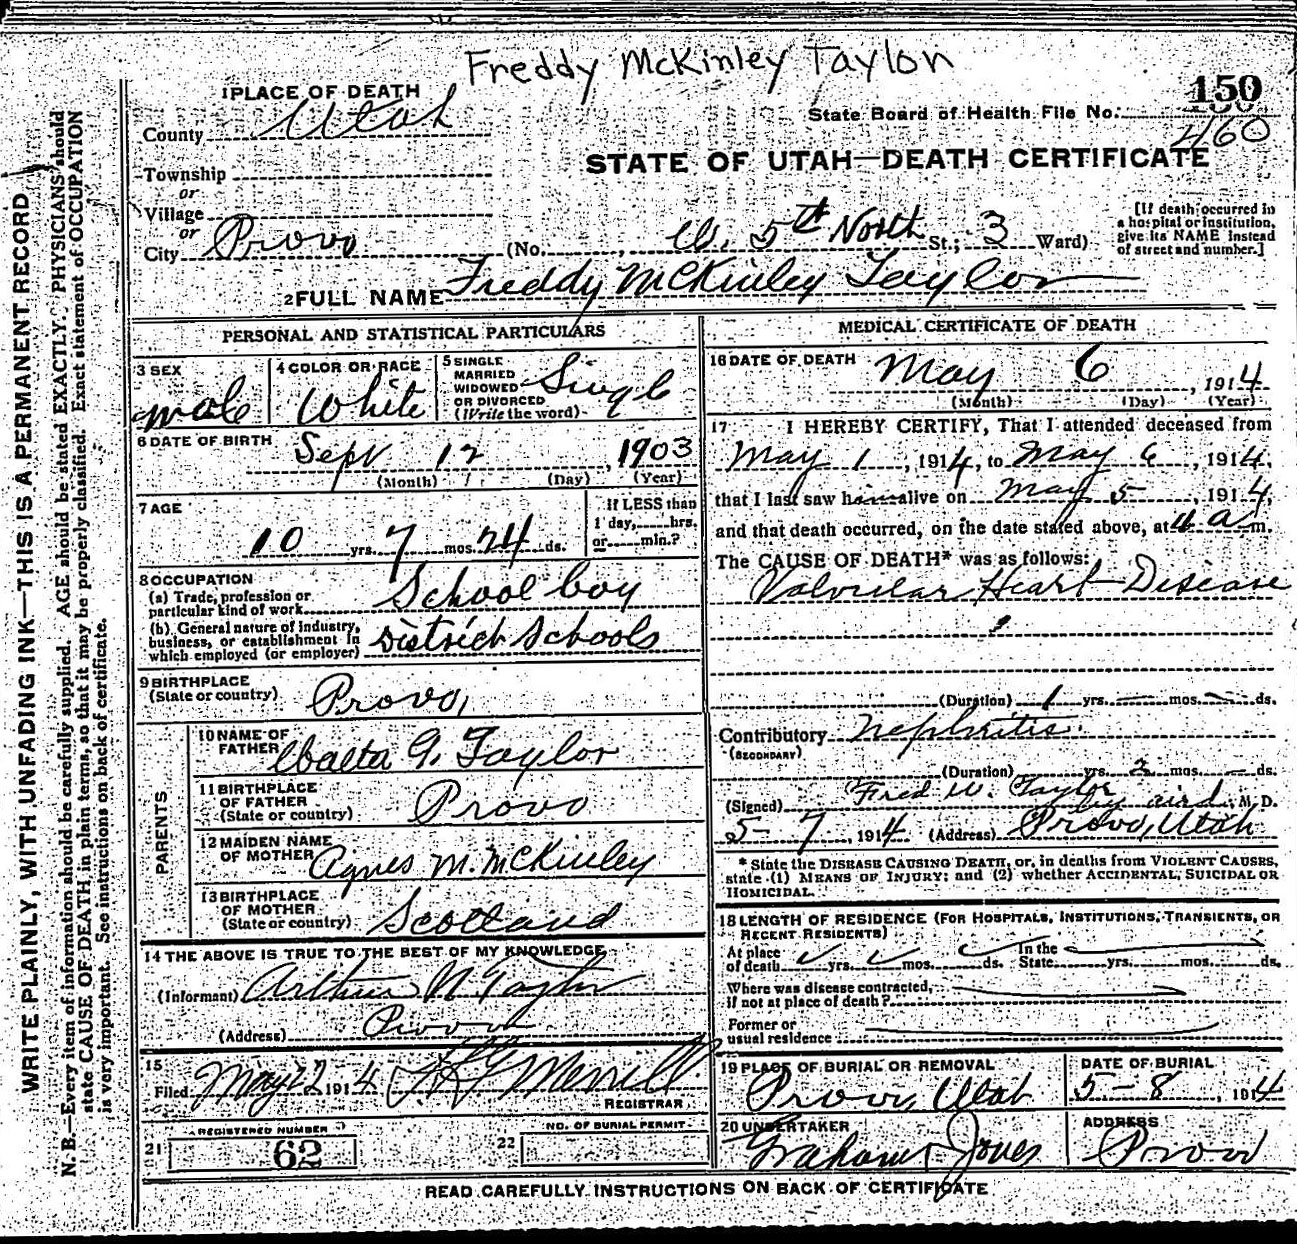 Freddy McKinley Taylor
1 PLACE OF DEATH
County Utah
State Board of Health File No. 150
460
STATE OF UTAH—DEATH CERTIFICATE
Township
or
Village
or
City Provo (No. W. 5th North St.; 3 Ward)
[If death occurred in
a hospital or institution,
give its NAME instead
of street and number.]
2 FULL NAME Freddy McKinley Taylor
PERSONAL AND STATISTICAL PARTICULARS
3 SEX
male
4 COLOR OR RACE
White
5 SINGLE
MARRIED
WIDOWED
OR DIVORCED
(Write the word)
Single
6 DATE OF BIRTH
Sept 12, 1903
(Month) (Day) (Year)
7 AGE
10 yrs. 7 mos. 24 ds.
If LESS than
1 day, hrs.
or min.?
8 OCCUPATION
(a) Trade, profession or
particular kind of work School boy
(b) General nature of industry,
business, or establishment in
which employed (or employer) District Schools
9 BIRTHPLACE
(State or country) Provo,
PARENTS
10 NAME OF
FATHER Walter G. Taylor
11 BIRTHPLACE
OF FATHER
(State or country) Provo
12 MAIDEN NAME
OF MOTHER Agnes M. McKinley
13 BIRTHPLACE
OF MOTHER
(State or country) Scotland
14 THE ABOVE IS TRUE TO THE BEST OF MY KNOWLEDGE
(Informant) Arthur N Taylor
(Address) Provo
15
Filed May 22 1914 Merrill
REGISTRAR
21 REGISTERED NUMBER
62
22 NO. OF BURIAL PERMIT
MEDICAL CERTIFICATE OF DEATH
16 DATE OF DEATH
May 6, 1914
(Month) (Day) (Year)
17 I HEREBY CERTIFY, That I attended deceased from
May 1, 1914, to May 6, 1914,
that I last saw him alive on May 5, 1914,
and that death occurred, on the date stated above, at 4 a m.
The CAUSE OF DEATH* was as follows:
Valvular Heart Disease
(Duration) 1 yrs. — mos. — ds.
Contributory Nephritis.
(SECONDARY)
(Duration) yrs. 2 mos. — ds.
(Signed) Fred W. Taylor, M. D.
5-7, 1914 (Address) Provo, Utah
* State the DISEASE CAUSING DEATH, or, in deaths from VIOLENT CAUSES,
state (1) MEANS OF INJURY; and (2) whether ACCIDENTAL, SUICIDAL OR
HOMICIDAL.
18 LENGTH OF RESIDENCE (FOR HOSPITALS, INSTITUTIONS, TRANSIENTS, OR
RECENT RESIDENTS)
At place
of death yrs. mos. ds.
In the
State yrs. mos. ds.
Where was disease contracted,
if not at place of death?
Former or
usual residence
19 PLACE OF BURIAL OR REMOVAL
Provo, Utah
DATE OF BURIAL
5-8, 1914
20 UNDERTAKER
Graham & Jones
ADDRESS
Provo
READ CAREFULLY INSTRUCTIONS ON BACK OF CERTIFICATE
WRITE PLAINLY, WITH UNFADING INK—THIS IS A PERMANENT RECORD
N. B.—Every item of information should be carefully supplied. AGE should be stated EXACTLY. PHYSICIANS should
state CAUSE OF DEATH in plain terms, so that it may be properly classified. Exact statement of OCCUPATION
is very important. See instructions on back of certificate.